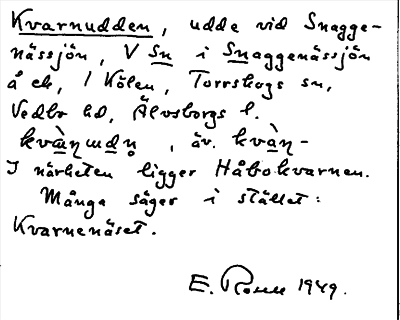 Kvarnudden, udde vid Snagge-
nässjön, V Sn i Snaggenässjön
å ek, I Kölen, Torrskogs sn,
Vedbo hd, Älvsborgs l.
kvàṇ , äv. kvàṇ-
I närheten ligger Håbokvarnen.
Många säger i stället:
Kvarnenäset.
E. 1949.